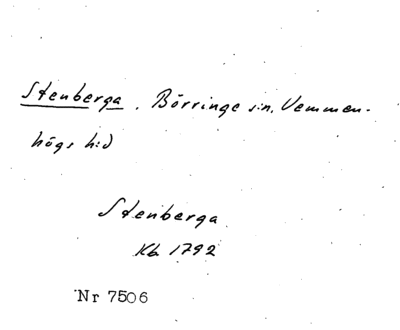 Stenberga. Börringe sn, Vemmen-
högs hd
Stenberga
Kb 1792
Nr 7506